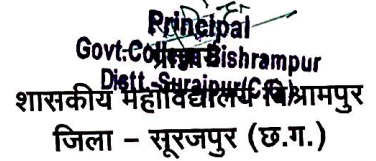 Principal
Govt.College Bishrampur
Distt.Surajpur(C.G.)
शासकीय महाविद्यालय बिश्रामपुर
जिला – सूरजपुर (छ.ग.)